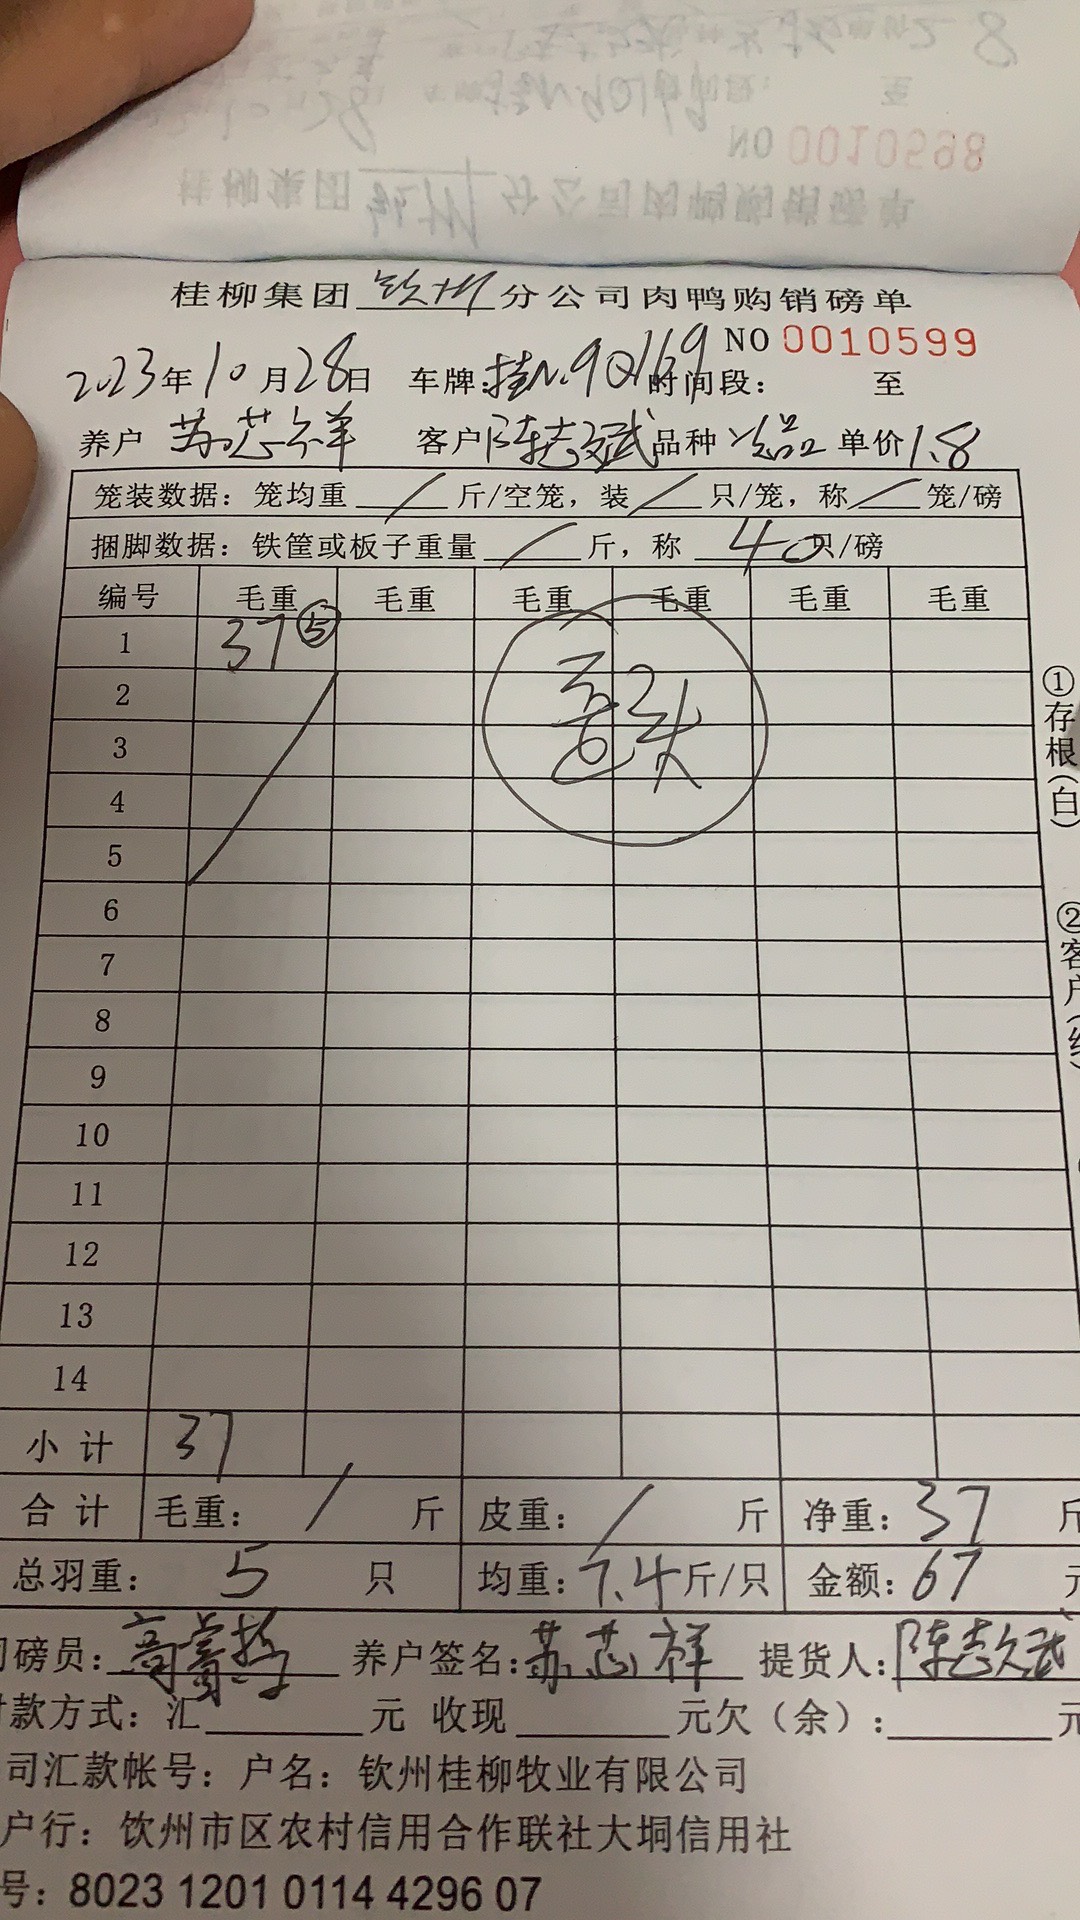 NO 0010598
桂柳集团 钦州 分公司肉鸭购销磅单
桂柳集团 钦州 分公司肉鸭购销磅单
NO 0010599
2023年10月28日 车牌:桂N.9Q169 时间段: 至
养户 苏芯祥 客户 陈志斌 品种 次品 单价 1.8
笼装数据: 笼均重 / 斤/空笼, 装 / 只/笼, 称 / 笼/磅
捆脚数据: 铁筐或板子重量 / 斤, 称 40 只/磅
编号 毛重 毛重 毛重 毛重 毛重 毛重
1 37 ⑤
2
3
4
5
6
7
8
9
10
11
12
13
14
小计 37
合计 毛重: / 斤 皮重: / 斤 净重: 37 斤
总羽重: 5 只 均重: 7.4 斤/只 金额: 67 元
磅员: 养户签名: 苏芯祥 提货人: 陈志斌
款方式: 汇 元 收现 元 欠(余): 元
司汇款帐号: 户名: 钦州桂柳牧业有限公司
户行: 饮州市区农村信用合作联社大垌信用社
号: 8023 1201 0114 4296 07
①存根(白)
②客户(红)